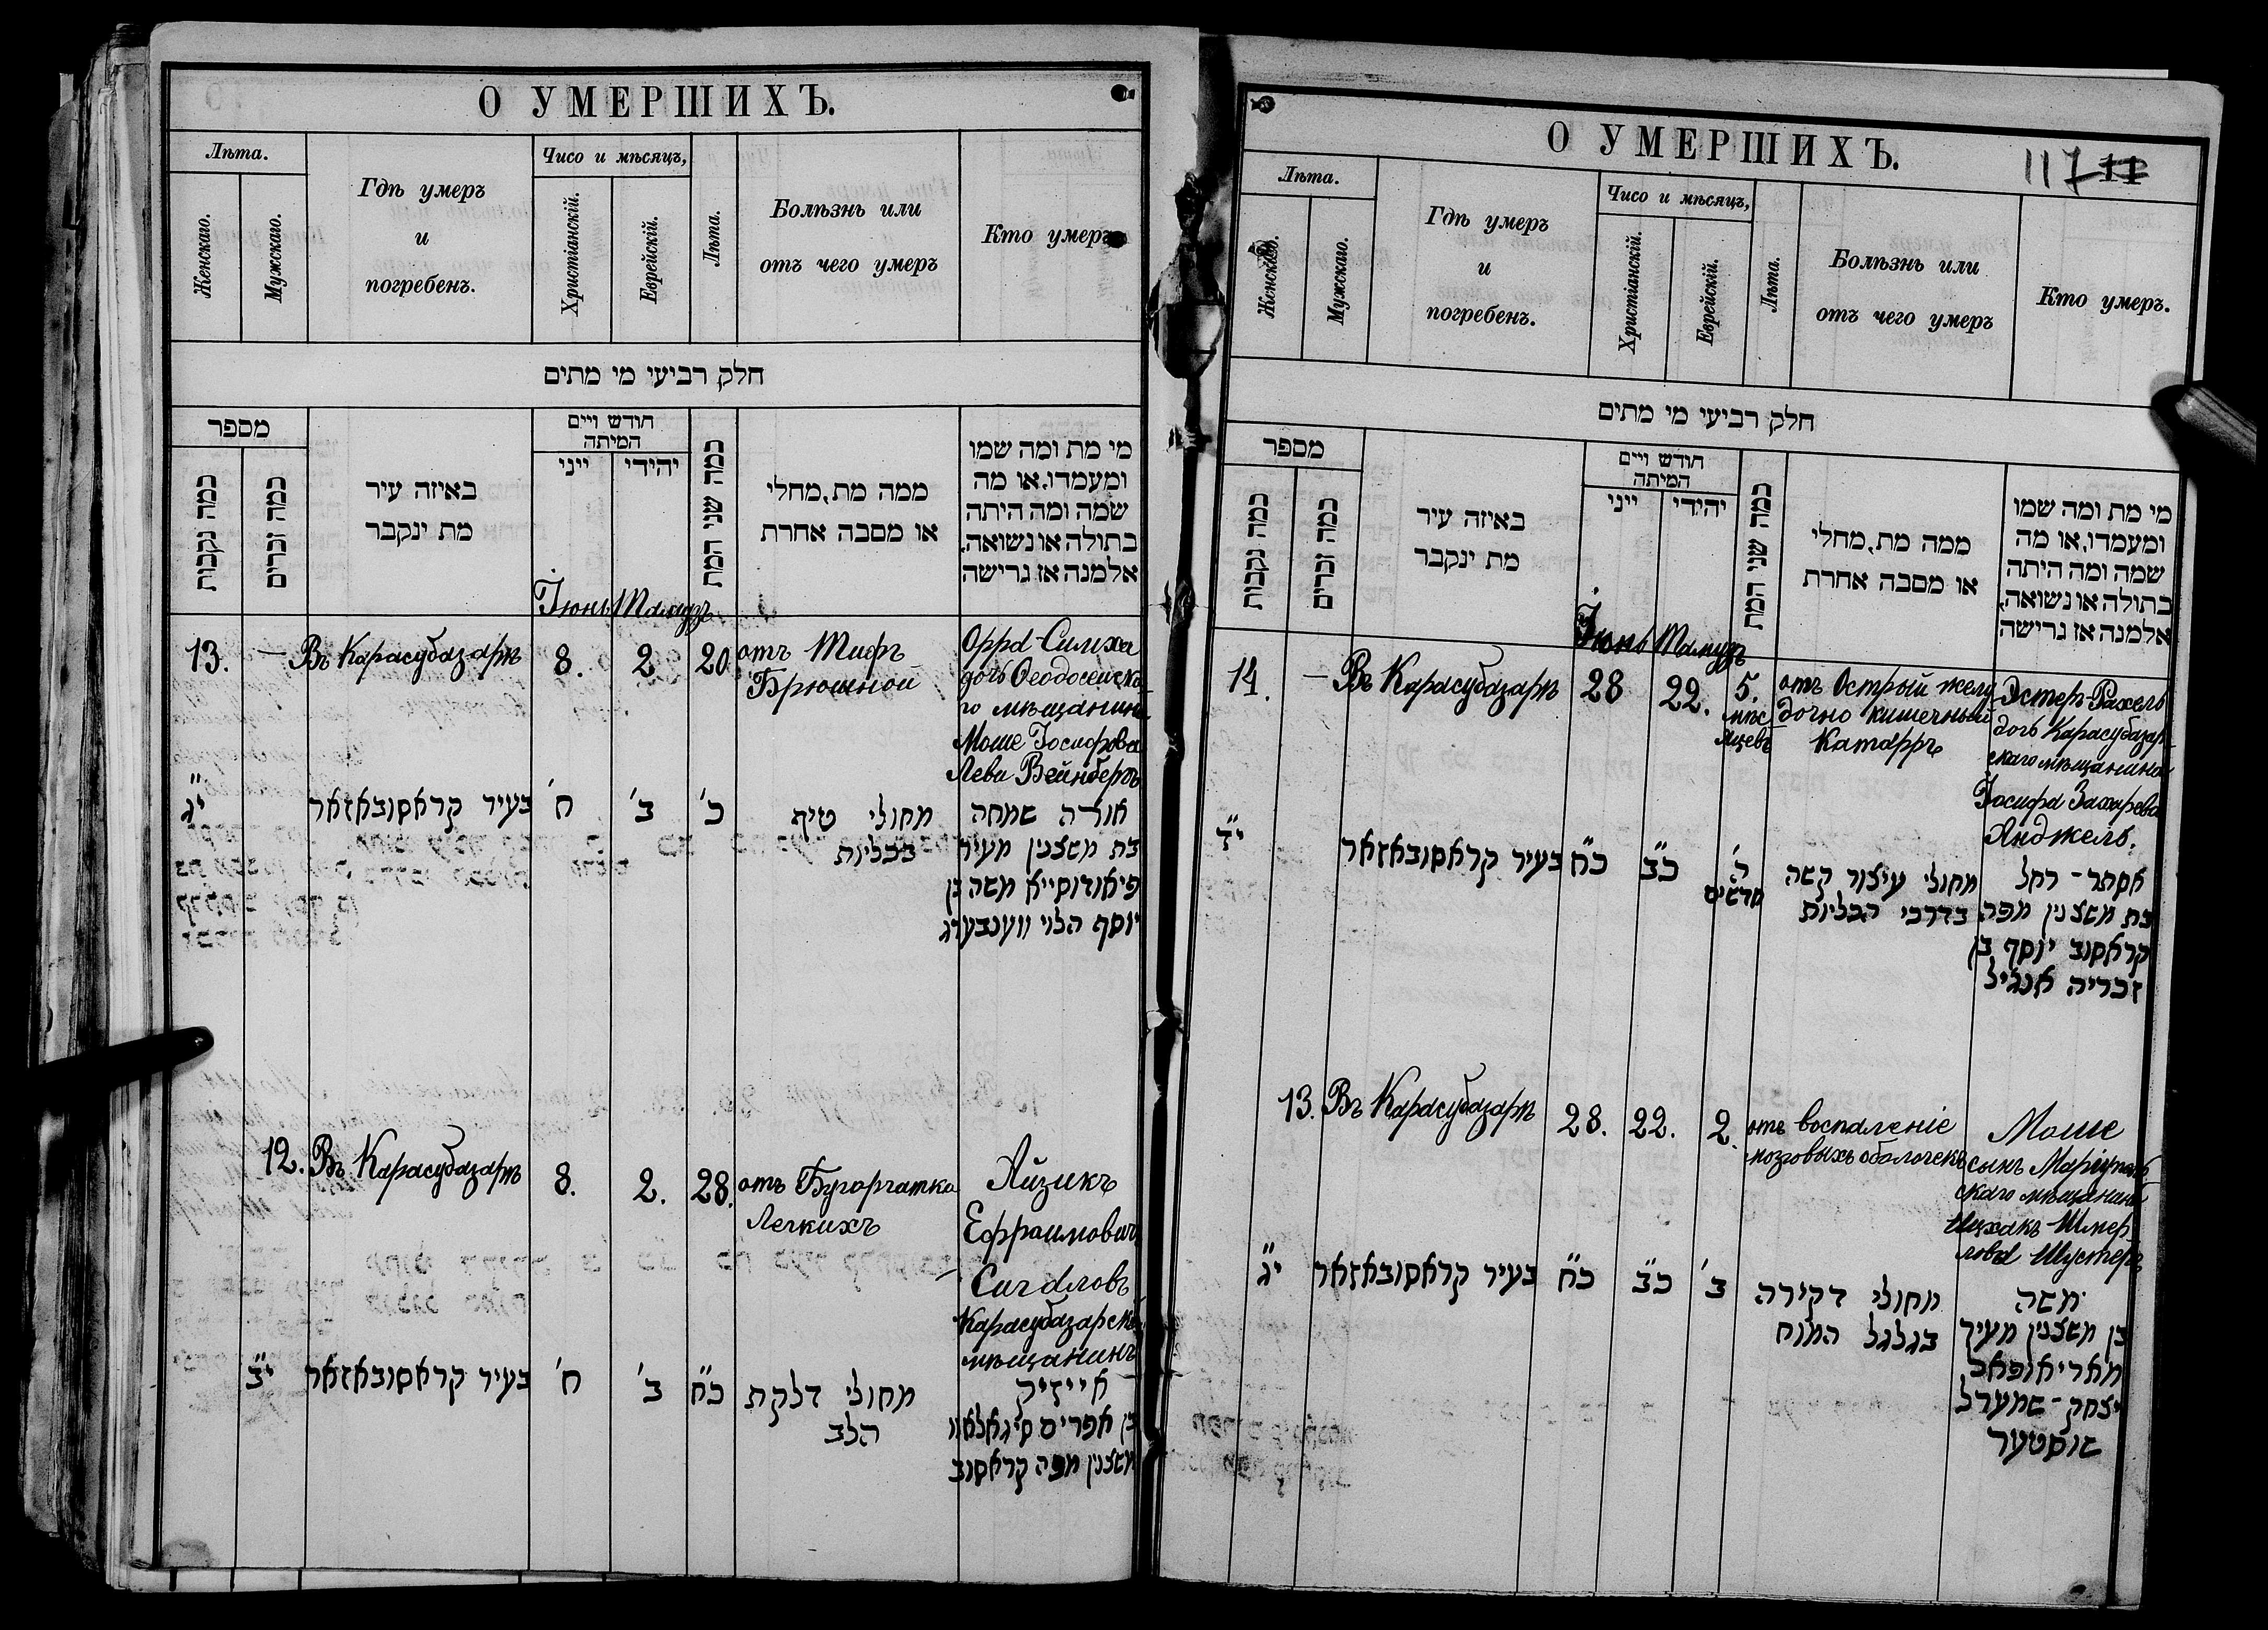 О УМЕРШИХЪ.
Лѣта.
Женскаго.
Мужскаго.
Гдѣ умеръ
и
погребенъ.
Чисо и мѣсяцъ,
Христіанскій.
Еврейскій.
Лѣта.
Болѣзнь или
отъ чего умеръ
Кто умеръ.
חלק רביעי מי מתים
מספר
כמה נקבות
כמה זכרים
באיזה עיר
מת ינקבר
חודש ויים
המיתה
ייני
יהידי
כמה שני המת
ממה מת, מחלי
או מסבה אחרת
מי מת ומה שמו
ומעמדו, או מה
שמה ומה היתה
בתולה או נשואה,
אלמנה אז גרישה
Іюнь Тамузъ
13. — Въ Карасубазарѣ 8. 2 20
отъ Тифъ
Брюшной
Орра-Симха
дочь Ѳеодосейска
го мѣщанина
Моше Іосифова
Леви Вейнбергъ
י"ג
בעיר קראסובאזאר ח' ב' כ'
מחולי טיף
בבליות
אורה שמחה
בת משצנין מעיר
פיאודוסייא משה בן
יוסף הלוי וועnבערג
12. Въ Карасубазарѣ 8. 2. 28.
отъ Бугорчатка
Легкихъ
Айзикъ
Ефраимовичъ
Сигаловъ
Карасубазарскій
мѣщанинъ
י"ב בעיר קראסובאזאר ח' ב' כ"ח
מחולי דלקת
הלב
אייזיק
בן אפרים סיגאלאוו
משצנין מפה קראסוב
О УМЕРШИХЪ.
117 11
Лѣта.
Женскаго.
Мужскаго.
Гдѣ умеръ
и
погребенъ.
Чисо и мѣсяцъ,
Христіанскій.
Еврейскій.
Лѣта.
Болѣзнь или
отъ чего умеръ
Кто умеръ.
חלק רביעי מי מתים
מספר
כמה נקבות
כמה זכרים
באיזה עיר
מת ינקבר
חודש ויים
המיתה
ייני
יהידי
כמה שני המת
ממה מת, מחלי
או מסבה אחרת
מי מת ומה שמו
ומעמדו, או מה
שמה ומה היתה
בתולה או נשואה,
אלמנה אז גרישה
Іюнь Тамузъ
14. — Въ Карасубазарѣ 28 22. 5.
мѣс
яцевъ
отъ Острый желу
дочно кишечный
Катарръ
Эстеръ-Рахель
дочь Карасубазар
скаго мѣщанина
Іосифа Захарева
Анджель.
י"ד
בעיר קראסובאזאר כ"ח כ"ב ה'
חדשים
מחולי עיצור קשה
בדרכי הבליות
אסתר-רחל
בת משצנין מפה
קראסוב יוסף בן
זכריה אנגיל
13. Въ Карасубазарѣ 28. 22. 2.
отъ воспаленіе
мозговыхъ оболочекъ
Моше
сынъ Маріуполь
скаго мѣщанина
Ицхакъ-Шмер
лова Шустеръ
י"ג בעיר קראסובאזאר כ"ח כ"ב ב'
מחולי דקירה
בגלגל המוח
משה
בן משצנין מעיר
מאריאופאל
יצחק-שמערל
שוסטער